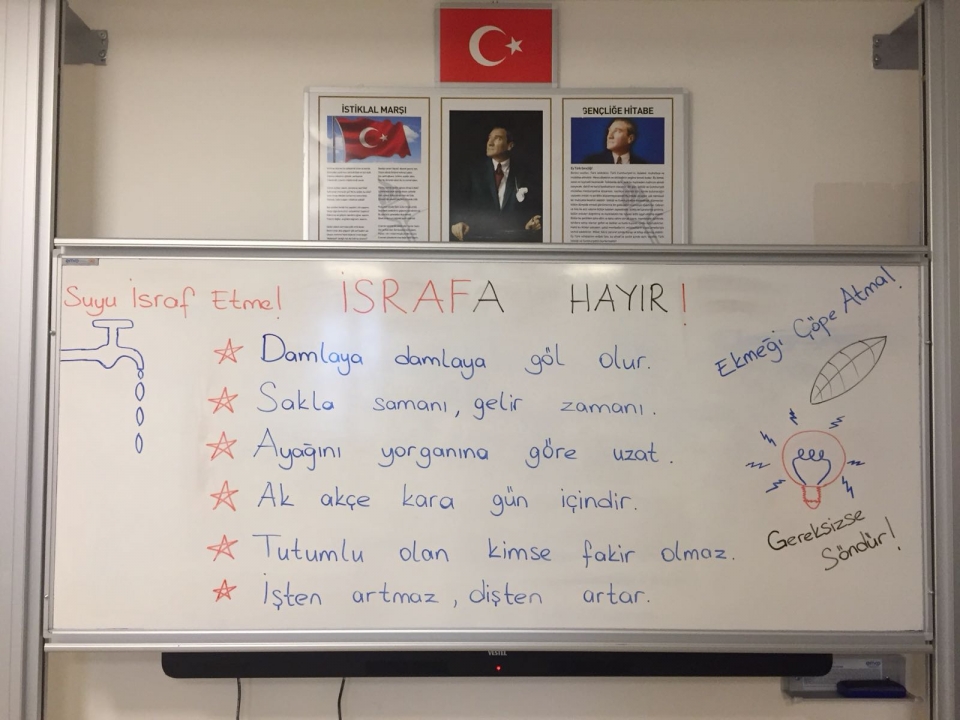 İSTİKLAL MARŞI
GENÇLİĞE HİTABE
Suyu İsraf Etme!
İSRAFA HAYIR!
Ekmeği Çöpe Atma!
Damlaya damlaya göl olur.
Sakla samanı, gelir zamanı.
Ayağını yorganına göre uzat.
Ak akçe kara gün içindir.
Tutumlu olan kimse fakir olmaz.
İşten artmaz, dişten artar.
Gereksizse
Söndür!
VESTEL